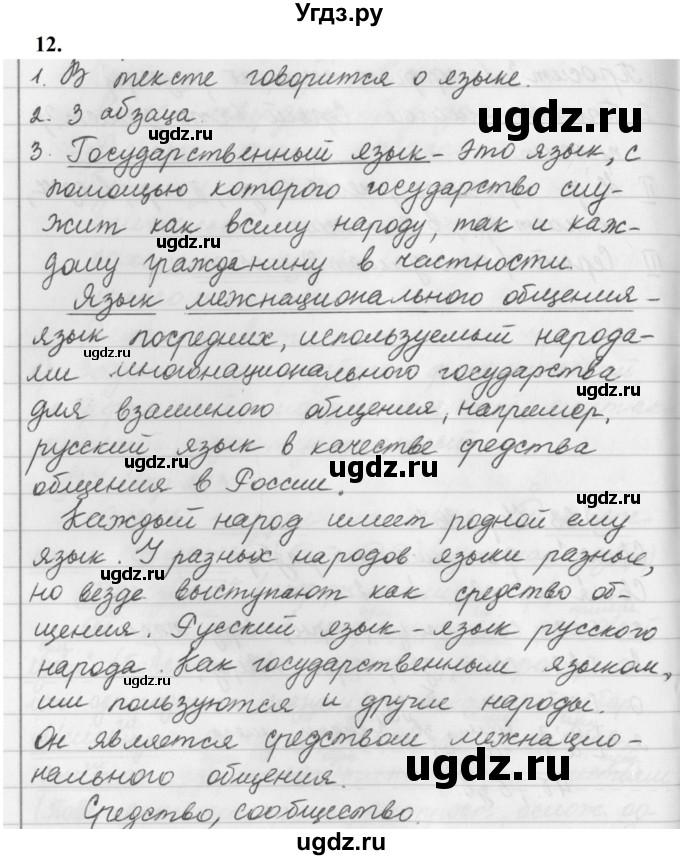 Угдз.ру
12.
1. В тексте говорится о языке.
2. 3 абзаца.
3. Государственный язык - это язык, с
помощью которого государство слу-
жит как всему народу, так и каж-
дому гражданину в частности.
Язык межнационального общения -
язык посредник, используемый народа-
ми многонационального государства
для взаимного общения, например,
русский язык в качестве средства
общения в России.
Каждый народ имеет родной ему
язык. У разных народов языки разные,
но везде выступают как средство об-
щения. Русский язык - язык русского
народа. Как государственным языком,
им пользуются и другие народы.
Он является средством межнацио-
нального общения.
Средство, сообщество.
ugdz.ru
ugdz.ru
ugdz.ru
ugdz.ru
ugdz.ru
ugdz.ru
ugdz.ru
ugdz.ru
ugdz.ru
ugdz.ru
ugdz.ru
ugdz.ru
ugdz.ru